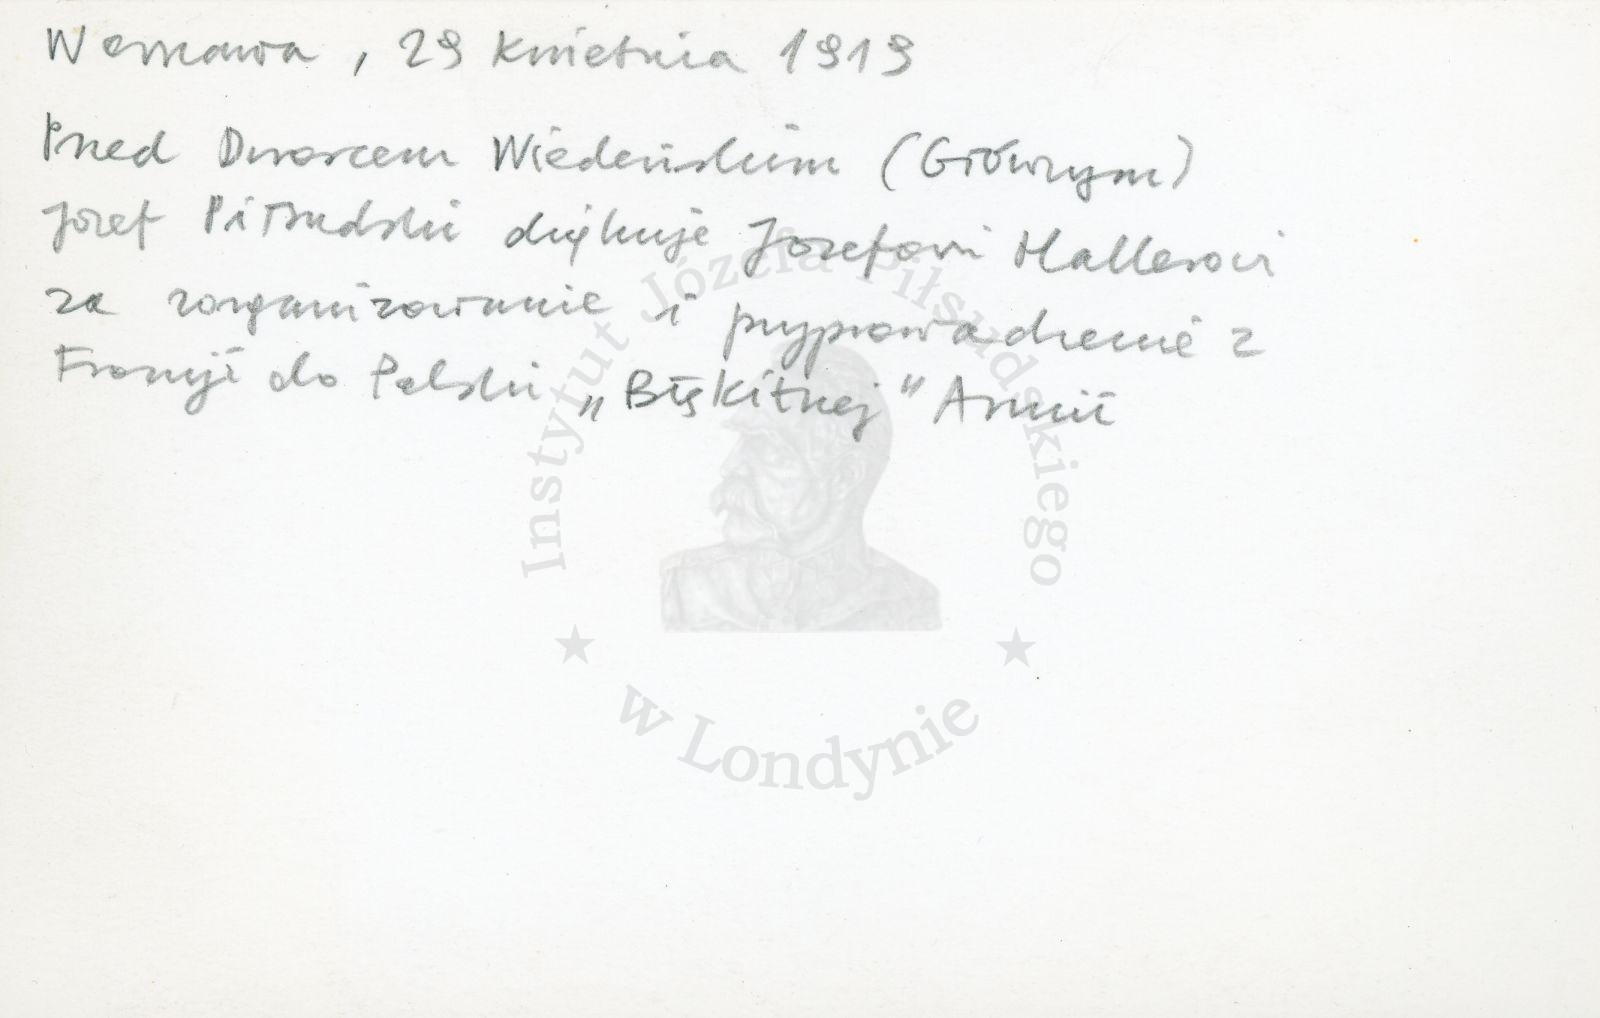 Warszawa, 29 kwietnia 1919
Przed Dworcem Wiedeńskim (Głównym)
Józef Piłsudski dziękuje Józefowi Hallerowi
za zorganizowanie i przyprowadzenie z
Francji do Polski „Błękitnej" Armii
Instytut Józefa Piłsudskiego
w Londynie